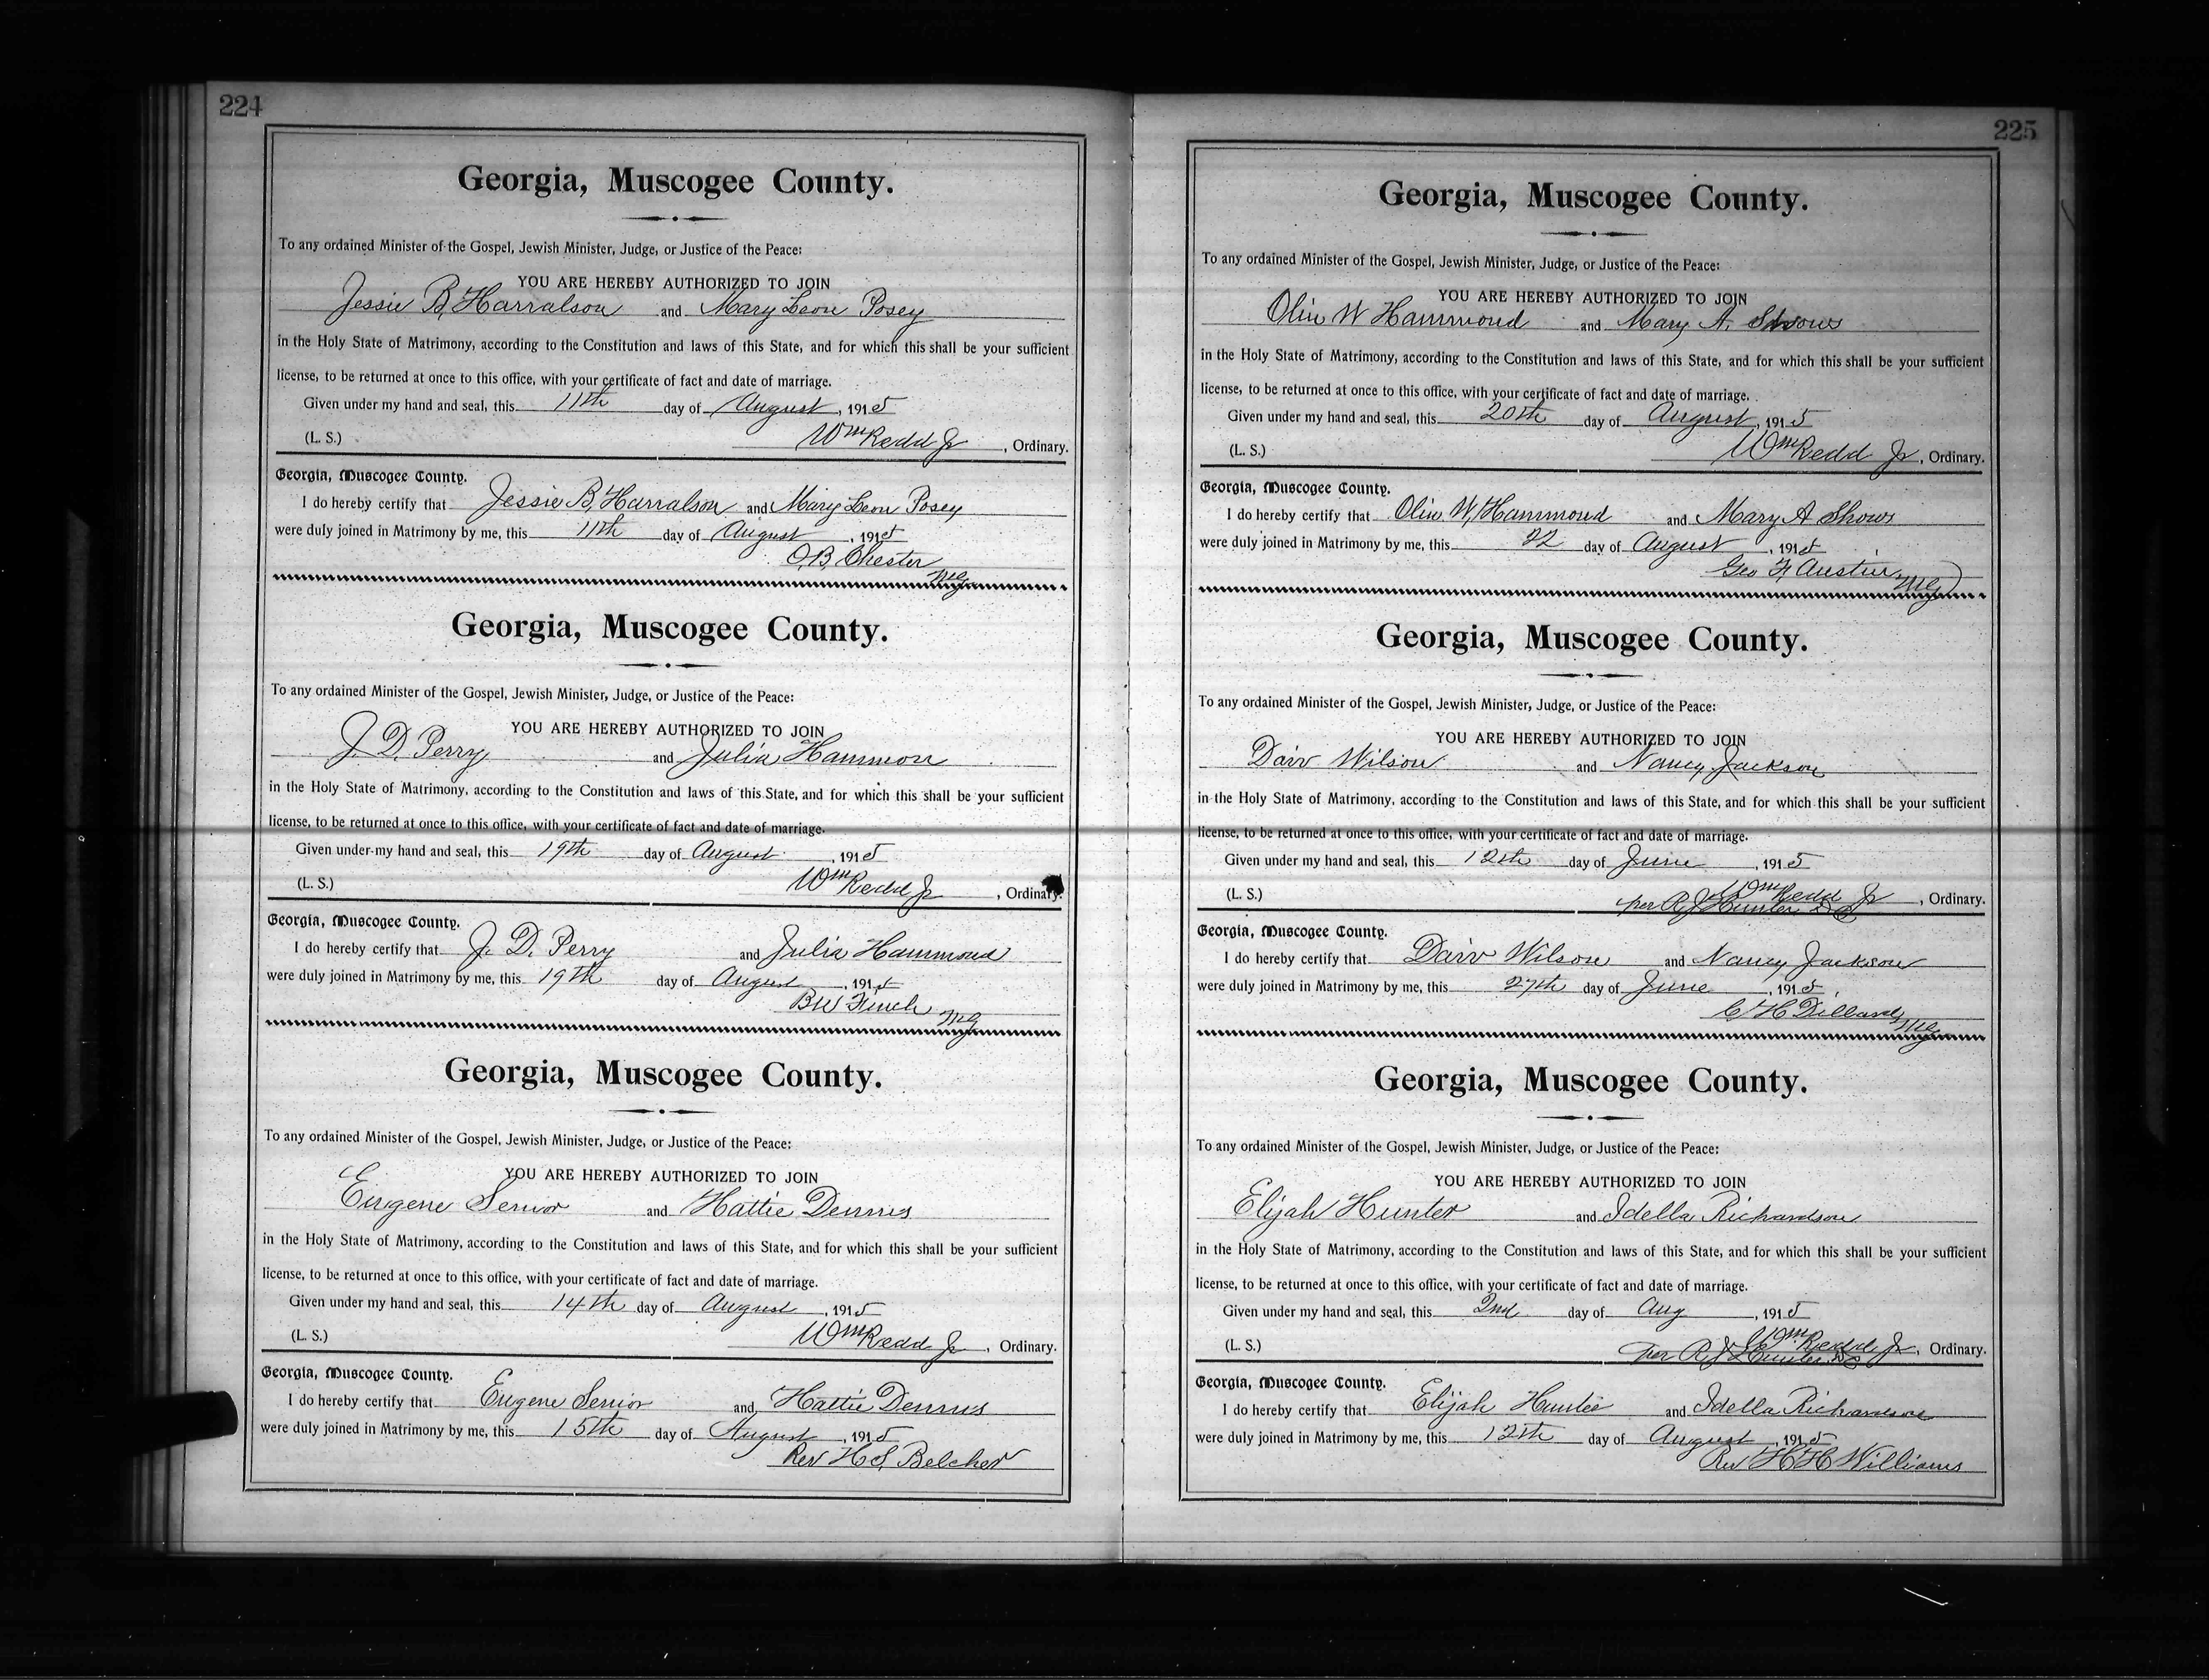 224
Georgia, Muscogee County.
To any ordained Minister of the Gospel, Jewish Minister, Judge, or Justice of the Peace:
YOU ARE HEREBY AUTHORIZED TO JOIN
Jessie B, Harralson and Mary Leon Posey
in the Holy State of Matrimony, according to the Constitution and laws of this State, and for which this shall be your sufficient
license, to be returned at once to this office, with your certificate of fact and date of marriage.
Given under my hand and seal, this 11th day of August, 1915
(L. S.) Wm Redd Jr, Ordinary.
Georgia, Muscogee County.
I do hereby certify that Jessie B, Harralson and Mary Leon Posey
were duly joined in Matrimony by me, this 11th day of August, 1915
O,B, Chester
MG
Georgia, Muscogee County.
To any ordained Minister of the Gospel, Jewish Minister, Judge, or Justice of the Peace:
YOU ARE HEREBY AUTHORIZED TO JOIN
J. D. Perry and Julia Hammon
in the Holy State of Matrimony, according to the Constitution and laws of this State, and for which this shall be your sufficient
license, to be returned at once to this office, with your certificate of fact and date of marriage.
Given under my hand and seal, this 19th day of August, 1915
(L. S.) Wm Redd Jr, Ordinary.
Georgia, Muscogee County.
I do hereby certify that J. D. Perry and Julia Hammond
were duly joined in Matrimony by me, this 19th day of August, 1915
BW Finch
MG
Georgia, Muscogee County.
To any ordained Minister of the Gospel, Jewish Minister, Judge, or Justice of the Peace:
YOU ARE HEREBY AUTHORIZED TO JOIN
Eugene Senior and Hattie Dennis
in the Holy State of Matrimony, according to the Constitution and laws of this State, and for which this shall be your sufficient
license, to be returned at once to this office, with your certificate of fact and date of marriage.
Given under my hand and seal, this 14th day of August, 1915
(L. S.) Wm Redd Jr, Ordinary.
Georgia, Muscogee County.
I do hereby certify that Eugene Senior and Hattie Dennis
were duly joined in Matrimony by me, this 15th day of August, 1915
Rev H S, Belcher
225
Georgia, Muscogee County.
To any ordained Minister of the Gospel, Jewish Minister, Judge, or Justice of the Peace:
YOU ARE HEREBY AUTHORIZED TO JOIN
Olin W Hammond and Mary A. Shows
in the Holy State of Matrimony, according to the Constitution and laws of this State, and for which this shall be your sufficient
license, to be returned at once to this office, with your certificate of fact and date of marriage.
Given under my hand and seal, this 20th day of August, 1915
(L. S.) Wm Redd Jr, Ordinary.
Georgia, Muscogee County.
I do hereby certify that Olin W, Hammond and Mary A Shows
were duly joined in Matrimony by me, this 22 day of August, 1915
Geo F, Austin
MG
Georgia, Muscogee County.
To any ordained Minister of the Gospel, Jewish Minister, Judge, or Justice of the Peace:
YOU ARE HEREBY AUTHORIZED TO JOIN
Wilson and Nancy Jackson
in the Holy State of Matrimony, according to the Constitution and laws of this State, and for which this shall be your sufficient
license, to be returned at once to this office, with your certificate of fact and date of marriage.
Given under my hand and seal, this 12th day of June, 1915
(L. S.) Wm Redd Jr, Ordinary.
per R J Hunter
Georgia, Muscogee County.
I do hereby certify that Wilson and Nancy Jackson
were duly joined in Matrimony by me, this 27th day of June, 1915
C H Dillard
MG
Georgia, Muscogee County.
To any ordained Minister of the Gospel, Jewish Minister, Judge, or Justice of the Peace:
YOU ARE HEREBY AUTHORIZED TO JOIN
Elijah Hunter and Idella Richardson
in the Holy State of Matrimony, according to the Constitution and laws of this State, and for which this shall be your sufficient
license, to be returned at once to this office, with your certificate of fact and date of marriage.
Given under my hand and seal, this 2nd day of Aug, 1915
(L. S.) Wm Redd Jr, Ordinary.
per R J Hunter
Georgia, Muscogee County.
I do hereby certify that Elijah Hunter and Idella Richardson
were duly joined in Matrimony by me, this 12th day of August, 1915
Rev H H Williams